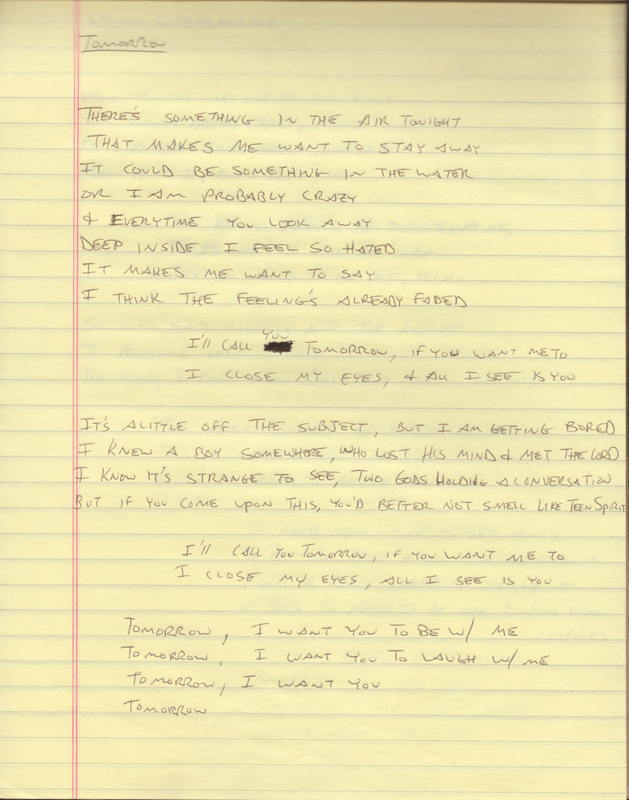 Tomorrow
THERE'S SOMETHING IN THE AIR TONIGHT
THAT MAKES ME WANT TO STAY AWAY
IT COULD BE SOMETHING IN THE WATER
OR I AM PROBABLY CRAZY
& EVERYTIME YOU LOOK AWAY
DEEP INSIDE I FEEL SO HATED
IT MAKES ME WANT TO SAY
I THINK THE FEELING'S ALREADY FADED
I'll CALL YOU TOMORROW, IF YOU WANT ME TO
I CLOSE MY EYES, & ALL I SEE IS YOU
IT'S A LITTLE OFF THE SUBJECT, BUT I AM GETTING BORED
I KNEW A BOY SOMEWHERE, WHO LOST HIS MIND & MET THE LORD
I KNOW IT'S STRANGE TO SEE, TWO GODS HOLDING A CONVERSATION
BUT IF YOU COME UPON THIS, YOU'D BETTER NOT SMELL LIKE TEEN SPIRIT
I'll CALL YOU TOMORROW, IF YOU WANT ME TO
I CLOSE MY EYES, ALL I SEE IS YOU
TOMORROW, I WANT YOU TO BE W/ ME
TOMORROW, I WANT YOU TO LAUGH W/ ME
TOMORROW, I WANT YOU
TOMORROW